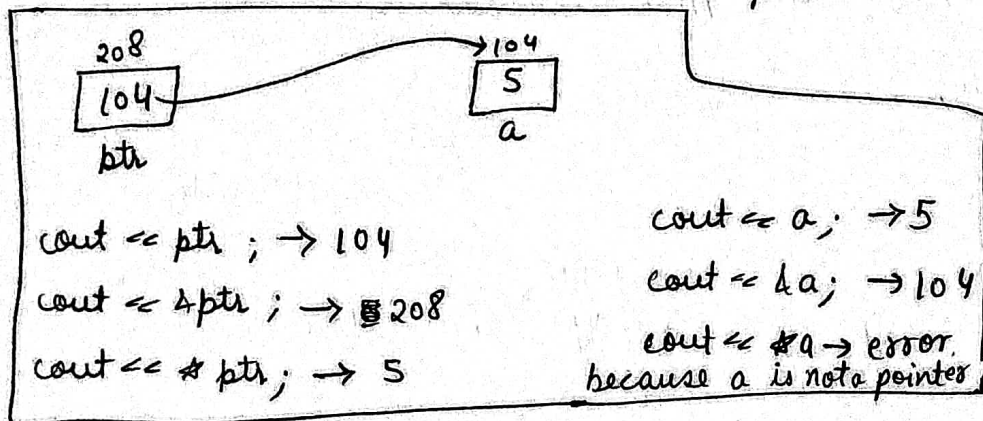 208
104
ptr
104
5
a
cout << ptr ; → 104
cout << &ptr ; → 208
cout << * ptr ; → 5
cout << a ; → 5
cout << &a ; → 104
cout << *a → error.
because a is not a pointer